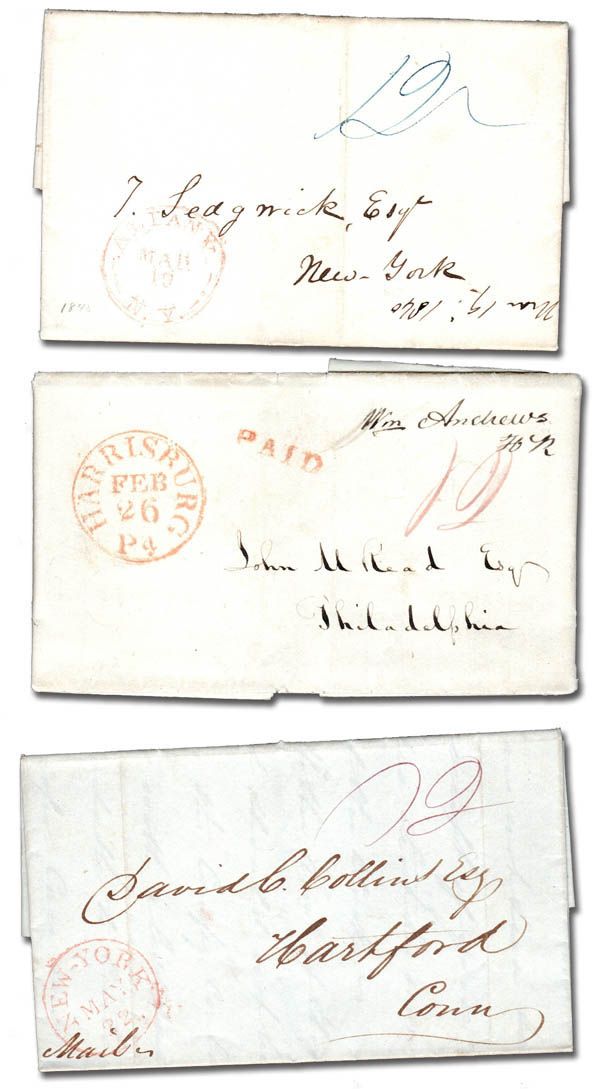 12
T. Sedgwick, Esqr
New-York
ALBANY
MAR
19
N.Y.
1840
Wm Andrews
HR
PAID
HARRISBURG
FEB
26
Pa
12
John M Read Esq
Philadelphia
12
David C. Collins Esq
Hartford
Conn
NEW-YORK
MAY
Mail